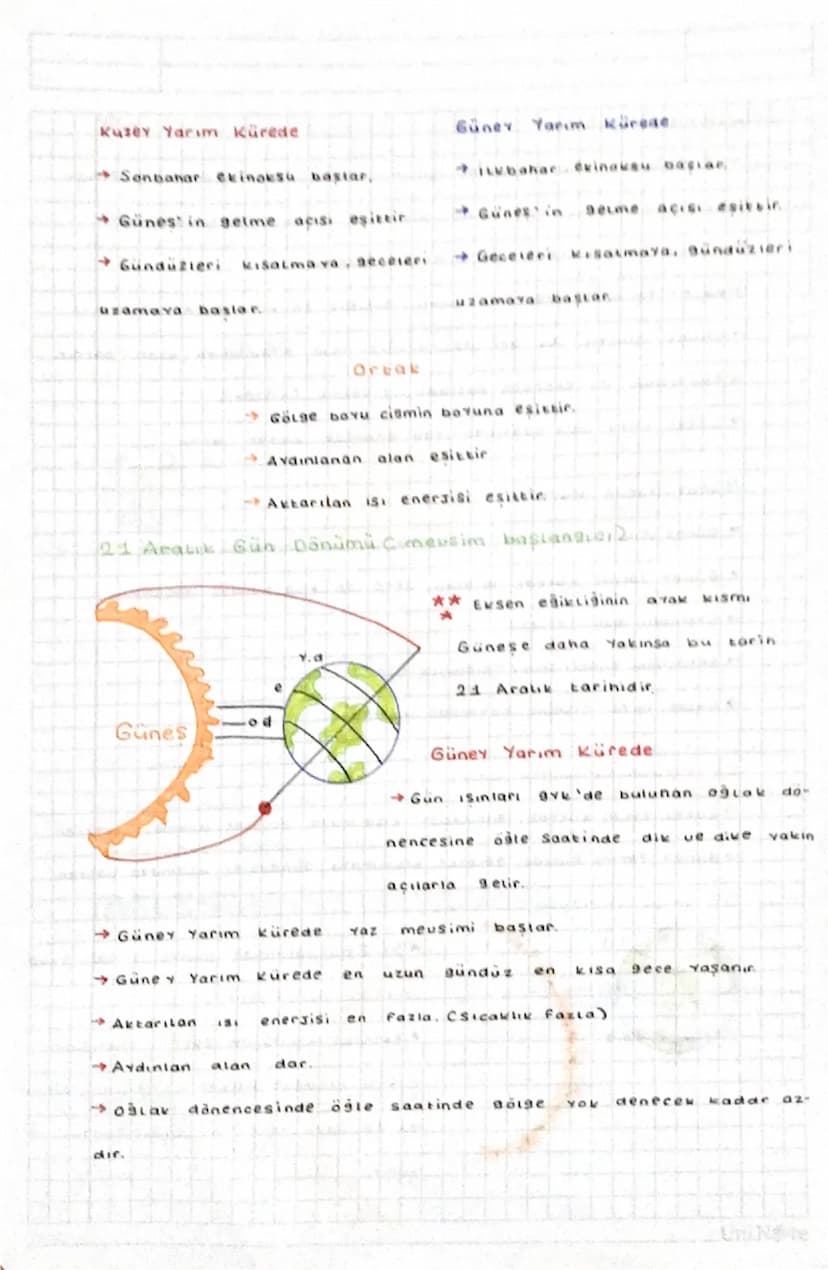 Kuzey Yarım Kürede
→ Sonbahar ekinoksu başlar.
→ Güneş'in gelme açısı eşittir
→ Gündüzleri kısalmaya, geceleri
uzamaya başlar.
Güney Yarım Kürede
→ İlkbahar ekinoksu başlar.
→ Güneş'in gelme açısı eşittir.
→ Geceleri kısalmaya, gündüzleri
uzamaya başlar
Ortak
→ Gölge boyu cismin boyuna eşittir.
→ Aydınlanan alan eşittir
→ Aktarılan ısı enerjisi eşittir.
21 Aralık Gün Dönümü (mevsim başlangıcı)
Y.d
e
o d
Güneş
** Eksen eğikliğinin ayak kısmı
*
Güneşe daha yakınsa bu tarih
21 Aralık tarihidir.
Güney Yarım Kürede
→ Gün ışınları gyk'de bulunan oğlak dö-
nencesine öğle saatinde dik ve dike yakın
açılarla gelir.
→ Güney Yarım Kürede yaz mevsimi başlar.
→ Güney Yarım Kürede en uzun gündüz en kısa gece yaşanır.
→ Aktarılan ısı enerjisi en fazla. (Sıcaklık fazla)
→ Aydınlan alan dar.
→ Oğlak dönencesinde öğle saatinde gölge yok denecek kadar az-
dır.
UniNote